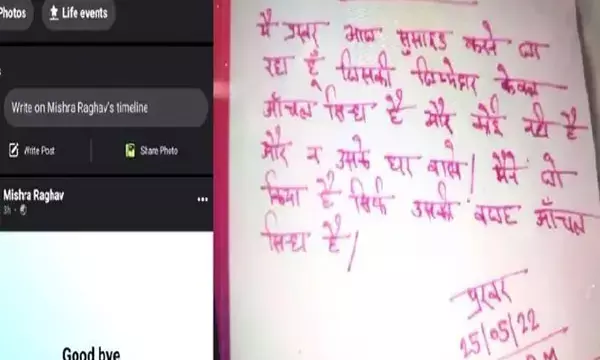 Photos
Life events
Write on Mishra Raghav's timeline
Write Post
Share Photo
Mishra Raghav
3h
Good bye
मै प्रखर आज सुसाइड करने जा
रहा हूँ जिसकी जिम्मेदार केवल
आँचल सिंह है और कोई नही है
और न उसके घर वाले। मैंने जो
किया है सिर्फ उसकी वजह आँचल
सिंह है।
प्रखर
25/05/22